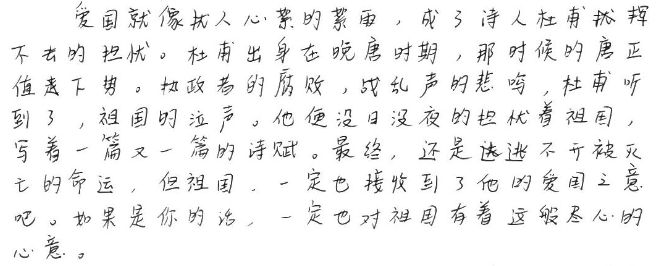 爱国就像扰人心絮的絮雨，成了诗人杜甫挑挥
不去的担忧。杜甫出身在晚唐时期，那时候的唐正
值走下势。执政者的腐败，战乱声的悲鸣，杜甫听
到了，祖国的泣声。他便没日没夜的担忧着祖国，
写着一篇又一篇的诗赋。最终，还是逃不开被灭
亡的命运，但祖国，一定也接收到了他的爱国之意
吧。如果是你的话，一定也对祖国有着这般尽心的
心意。